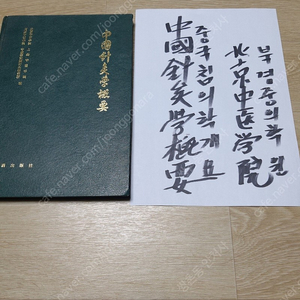 中國針灸學概要
出版社
中國針灸學概要
중국침의학개요
北京中医学院
북경중의학원
cafe.naver.com/joonggonara